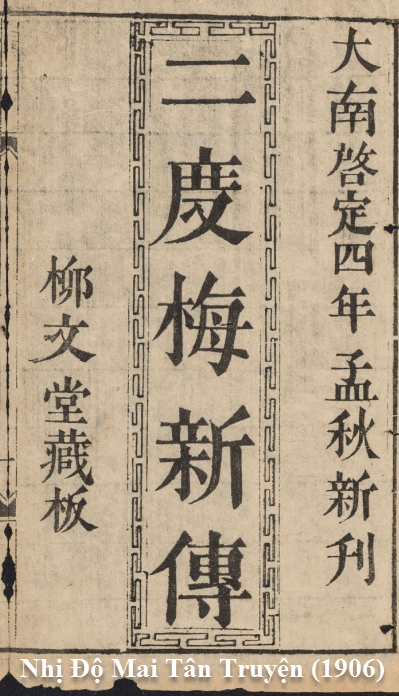 大南啓定四年孟秋新刊
二度梅新傳
柳文堂藏板
Nhị Độ Mai Tân Truyện (1906)